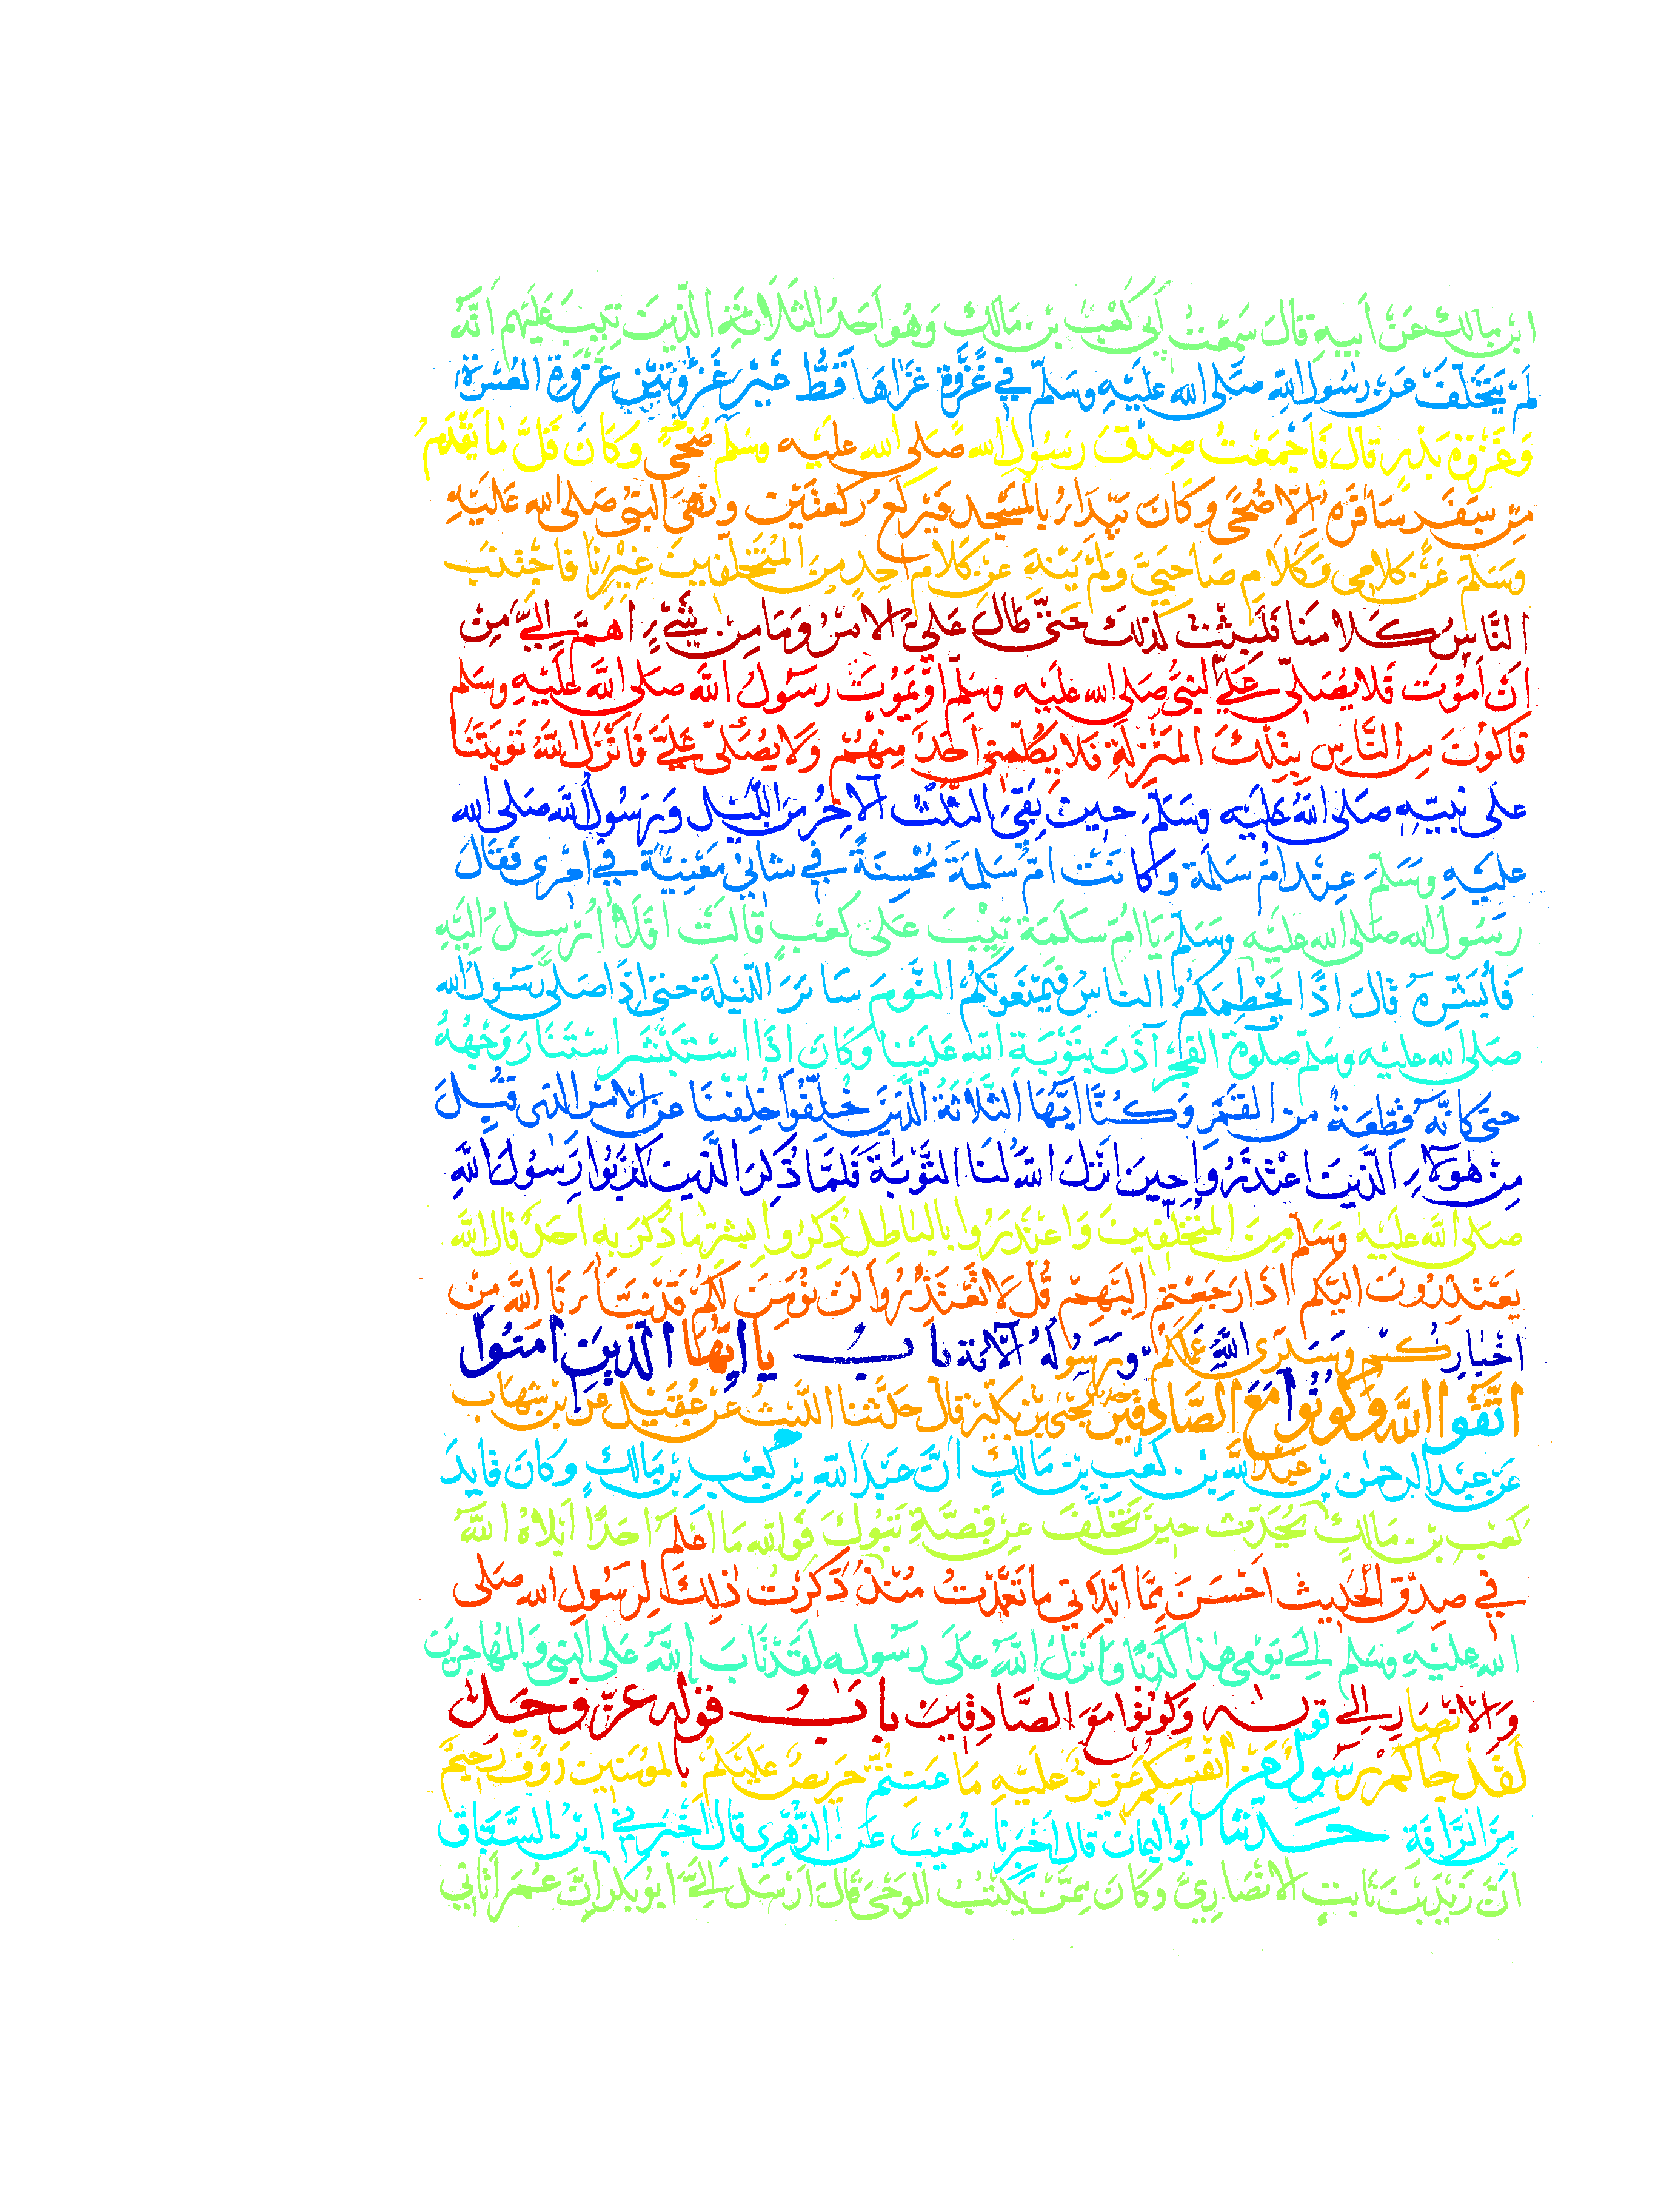 ابن مالك عَنْ اَبيهِ قالَ سَمِعْتُ اَبِي كَعْبَ بن مَالك وَهُوَ اَحَدُ الثَلَاثَةِ الَّذينَ تِيبَ عَلَيْهِم اَنَّهُ
لَمْ يَتَخَلَّفْ عَنْ رسُولِ اللهِ صَلى الله عَلَيْهِ وسَلّم في غَزْوَةٍ غَزَاهَا قَطُّ غَيْرَ غَزْوَتَيْنِ غَزْوَةِ العُسْرَةِ
وَغَزْوَةِ بَدْرٍ قال فَاَجْمَعْتُ صِدْقَ رسُولِ الله صَلى الله عليه وسَلم ضُحًى وَكَانَ قَلَّ مَا يَقْدَمُ
مِن سَفَرٍ سَافَرَهُ اِلَّا ضُحًى وكَانَ يَبْدَاُ بِالمَسْجِد فَيَرْكَعُ رَكْعَتَيْنِ ونَهَى النبيُّ صَلى الله عَلَيْهِ
وَسَلَّمَ عَنْ كَلامِي وَكَلَامِ صَاحِبَيَّ وَلَمْ يَنْهَ عَنْ كَلَامِ اَحَدٍ مِنَ المُتَخَلّفِينَ غَيْرِنَا فَاجْتَنَبَ
النَّاسُ كَلامَنَا فَلَبِثْتُ كَذلكَ حَتَّى طَالَ عَلَيَّ الاَمْرُ وَمَا مِنْ شَيْءٍ اَهَمُّ اِلَيَّ مِنْ
اَنْ اَمُوْتَ فَلا يُصَلِّيْ عَلَيَّ النبيُّ صَلى الله عَلَيْه وسَلم اَوْ يَمُوْتَ رسُولُ اللهِ صَلى الله عَلَيْهِ وسَلم
فَاَكُوْنَ مِنَ النَّاسِ بِتِلْكَ المَنْزِلَةِ فَلا يُكَلِّمُنِي اَحَدٌ مِنْهُمْ وَلا يُصَلِّي عَلَيَّ فَاَنْزَلَ اللهُ تَوْبَتَنَا
علَى نَبِيِّهِ صَلى اللهُ عَلَيْهِ وسَلَّمَ حِينَ بَقِيَ الثُّلُثُ الآخِرُ مِنَ اللَّيْلِ وَرَسُولُ اللهِ صَلى الله
عليْهِ وَسَلَّمَ عِنْدَ اُمِّ سَلَمَةَ وكَانَتْ اُمُّ سَلَمَةَ مُحْسِنَةً في شَاْنِي مَعْنِيَّةً في اَمْرِي فَقَالَ
رَسُولُ اللهِ صَلى الله عليْهِ وسَلَّمَ يَا اُمَّ سَلَمَةَ تِيْبَ عَلى كَعْبٍ قَالَتْ اَفَلَا اُرْسِلُ اِلَيْهِ
فَاُبَشِّرَهُ قَالَ اِذًا يَحْطِمَكُمُ النَاسُ فَيَمْنَعُونَكُمُ النَّومَ سَائِرَ اللَّيْلَةِ حَتى اِذَا صَلى رَسُولُ اللهِ
صَلى الله عليه وسلم صَلوةَ الفَجْرِ آذَنَ بِتَوْبَةِ اللهِ عَلَيْنَا وَكَانَ اِذَا اسْتَبْشَرَ اسْتَنَارَ وَجْهُهُ
حَتى كَاَنَّهُ قِطْعَةٌ مِنَ القَمَرِ وَكُنَّا اَيُّهَا الثَّلَاثَةُ الَّذِيْنَ خُلِّفُوا خُلِّفْنَا عن الاَمْرِ الذي قُبِلَ
مِنْ هؤُلاءِ الَّذِينَ اعْتَذَرُوا حِينَ اَنْزَلَ اللهُ لَنَا التَّوْبَةَ فَلَمَّا ذُكِرَ الَّذِينَ كَذَبُوا رَسُولَ اللهِ
صَلى الله عَلَيْهِ وَسَلم مِنَ المُتَخَلِّفِينَ وَاعْتَذَرُوا بِالبَاطِلِ ذُكِرُوا بِشَرِّ مَا ذُكِرَ بِهِ اَحَدٌ قَالَ اللهُ
يَعْتَذِرُونَ اِلَيْكُم اِذَا رَجَعْتُمْ اِلَيْهِمْ قُلْ لَا تَعْتَذِرُوا لَنْ نُؤْمِنَ لَكُمْ قَدْ نَبَّاَنَا اللهُ مِنْ
اَخْبَارِكُمْ وَسَيَرَى اللهُ عَمَلَكُمْ وَرَسُولُهُ الآيَةَ بَابُ يا اَيُّهَا الَّذِيْنَ آمَنُوا
اتَّقُوا اللهَ وَكُونُوا مَعَ الصَّادِقِينَ يَحْيَى بْنُ بُكَيْرٍ قال حَدَّثَنَا اللَّيْثُ عَنْ عُقَيْلٍ عَنِ ابْنِ شِهَابٍ
عَنْ عَبْدِ الرحمن بْنِ عَبْدِ اللهِ بْنِ كَعْبِ بْنِ مَالِكٍ اَنَّ عَبْدَ اللهِ بْنَ كَعْبِ بْنِ مَالِكٍ وَكَانَ قَايِدَ
كَعْبِ بْنِ مَالِكٍ يُحَدِّثُ حِينَ تَخَلَّفَ عن قِصَّةِ تَبُوْكَ فَوَاللهِ مَا اَعْلَمُ اَحَدًا اَبْلَاهُ اللهُ
في صِدْقِ الْحَدِيثِ اَحْسَنَ مِمَّا اَبْلَانِي مَا تَعَمَّدْتُ مُنْذُ ذَكَرْتُ ذلِكَ لِرسُولِ الله صَلى
الله عليْهِ وَسَلم اِلَى يَوْمِي هذَا كَذِبًا وَاَنْزَلَ اللهُ عَلَى رَسُولِه لَقَدْ تَابَ اللهُ عَلَى النَّبِيِّ وَالمُهَاجِرِيْنَ
وَالاَنْصَارِ اِلَى قوله وَكُوْنُوا مَعَ الصَّادِقِيْنَ بَابُ قوْلِه عَزَّ وَجَلَّ
لَقَدْ جَاءَكُمْ رَسُولٌ مِنْ اَنْفُسِكُمْ عَزِيْزٌ عَلَيْهِ مَا عَنِتُّمْ حَرِيصٌ عَلَيْكُمْ بِالمُؤمِنِينَ رَؤُفٌ رَحِيمٌ
مِنَ الرَّاْفَةِ حَدَّثَنَا اَبُو اليَمَان قال اَخْبَرنَا شُعَيْبٌ عَنِ الزُّهْرِيِّ قَالَ اَخْبَرَنِي ابْنُ السَّبَّاقِ
اَنَّ زَيْدَ بْنَ ثَابِتٍ الاَنْصَارِيَّ وَكَانَ مِمَّنْ يَكْتُبُ الوَحْيَ قَالَ اَرْسَلَ اِلَيَّ اَبُو بَكْرٍ اِنَّ عُمَرَ اَتَانِي